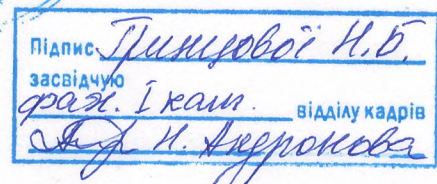 Підпис Гринцової Н.Б.
засвідчую
фах. І кат. відділу кадрів
Н. Андронова